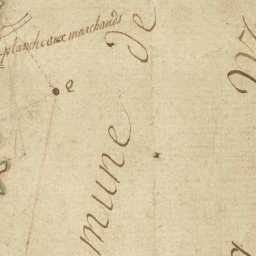 planche aux marchands
e
mune de